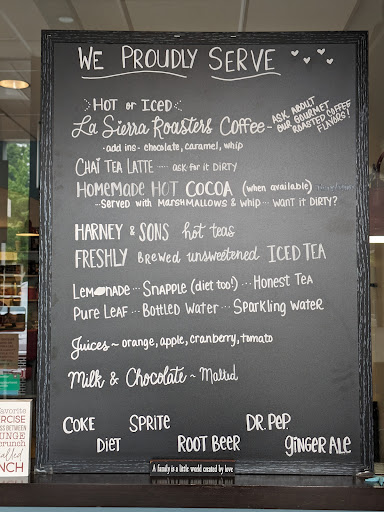 WE PROUDLY SERVE
HOT or ICED
La Sierra Roasters Coffee ~ ASK ABOUT
OUR GOURMET
ROASTED COFFEE
FLAVORS!
- add ins - chocolate, caramel, whip
CHAI TEA LATTE .... ask for it DIRTY
HOMEMADE HOT COCOA (when available)
- Served with MARSHMALLOWS & WHIP ... WANT it DIRTY?
HARNEY & SONS hot teas
FRESHLY Brewed unsweetened ICED TEA
LEMONADE ... SNAPPLE (diet too!) ... Honest TEA
PURE LEAF ... Bottled Water ... Sparkling Water
Juices ~ orange, apple, cranberry, tomato
Milk & Chocolate ~ Malted
COKE SPRITE DR. PEP.
DIET ROOT BEER GINGER ALE
A family is a little world created by love
BETWEEN